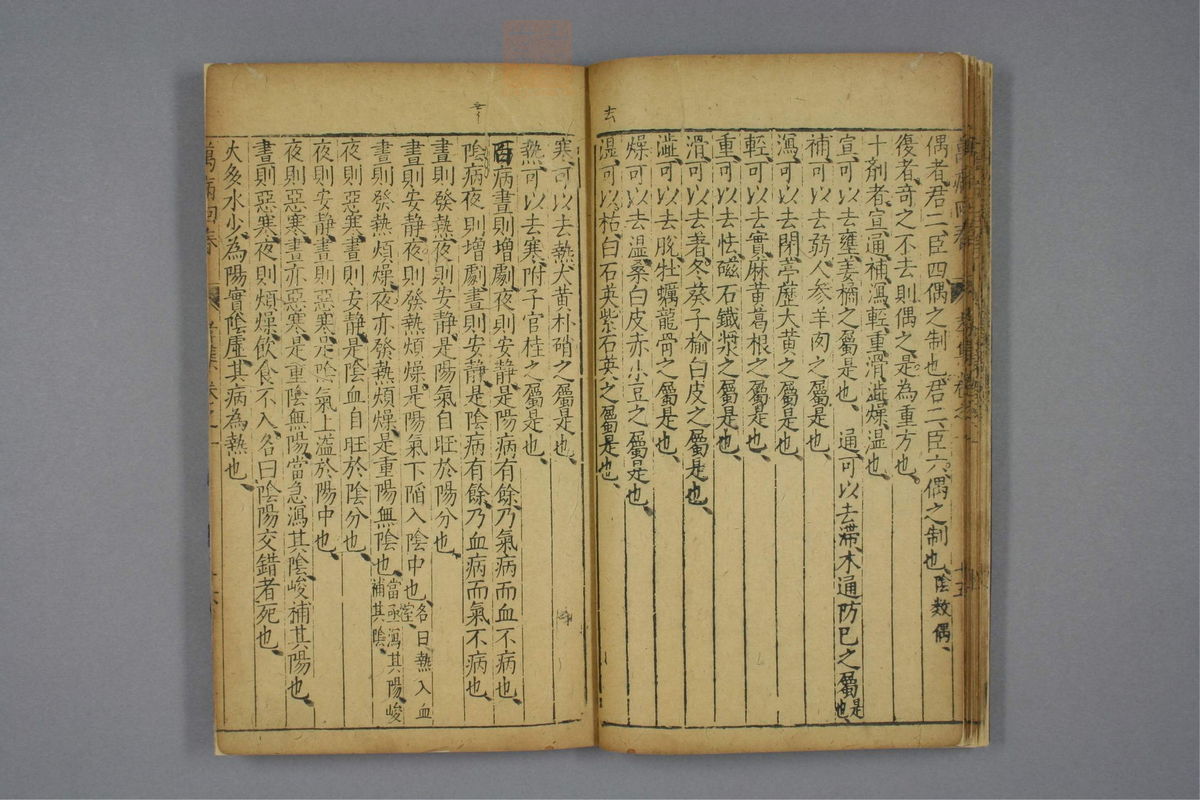 偶者君二、臣四、偶之制也、君二、臣六、偶之制也、陰数偶、
復者奇之不去則偶之、是為重方也、
十剤者、宣、通、補、瀉、輕、重、滑、澁、燥、温也、
宣可以去壅、姜橘之屬是也、通可以去滞、木通防巳之屬是也、
補可以去弱、人参羊肉之屬是也、
瀉可以去閉、葶藶大黄之屬是也、
輕可以去實、麻黄葛根之屬是也、
重可以去怯、磁石鐵漿之屬是也、
滑可以去着、冬葵子榆白皮之屬是也、
澁可以去脫、牡蠣龍骨之屬是也、
燥可以去温、桑白皮赤小豆之屬是也、
濕可以去枯、白石英紫石英之屬是也、
去
寒可以去熱、大黄朴硝之屬是也、
熱可以去寒、附子官桂之屬是也、
百病晝則增劇、夜則安靜、是陽病有餘、乃氣病而血不病也、
陰病夜則增劇、晝則安靜、是陰病有餘、乃血病而氣不病也、
晝則發熱、夜則安靜、是陽氣自旺於陽分也、
晝則安靜、夜則發熱煩燥、是陽氣下陷入陰中也、名曰熱入血室、
晝則發熱煩燥、夜亦發熱煩燥、是重陽無陰也、當亟瀉其陽、峻補其陰、
夜則惡寒、晝則安靜、是陰血自旺於陰分也、
夜則安靜、晝則惡寒、是陰氣上溢於陽中也、
夜則惡寒、晝亦惡寒、是重陰無陽、當急瀉其陰、峻補其陽也、
晝則惡寒、夜則煩燥、飲食不入、名曰陰陽交錯者死也、
火多水少、為陽實陰虛、其病為熱也、
萬病回春 卷之一